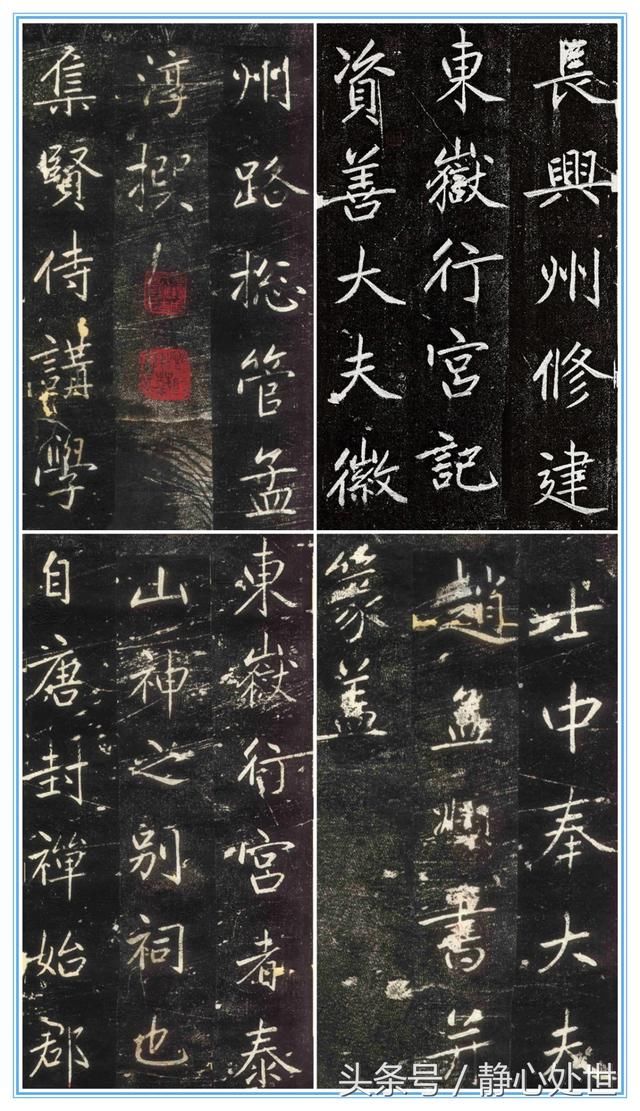 長興州修建
東嶽行宮記
資善大夫徽
州路揔管孟
淳撰
集賢侍講學
士中奉大夫
趙孟頫書并
篆蓋
東嶽行宮者泰
山神之别祠也
自唐封禪始郡
头条号 / 静心处世